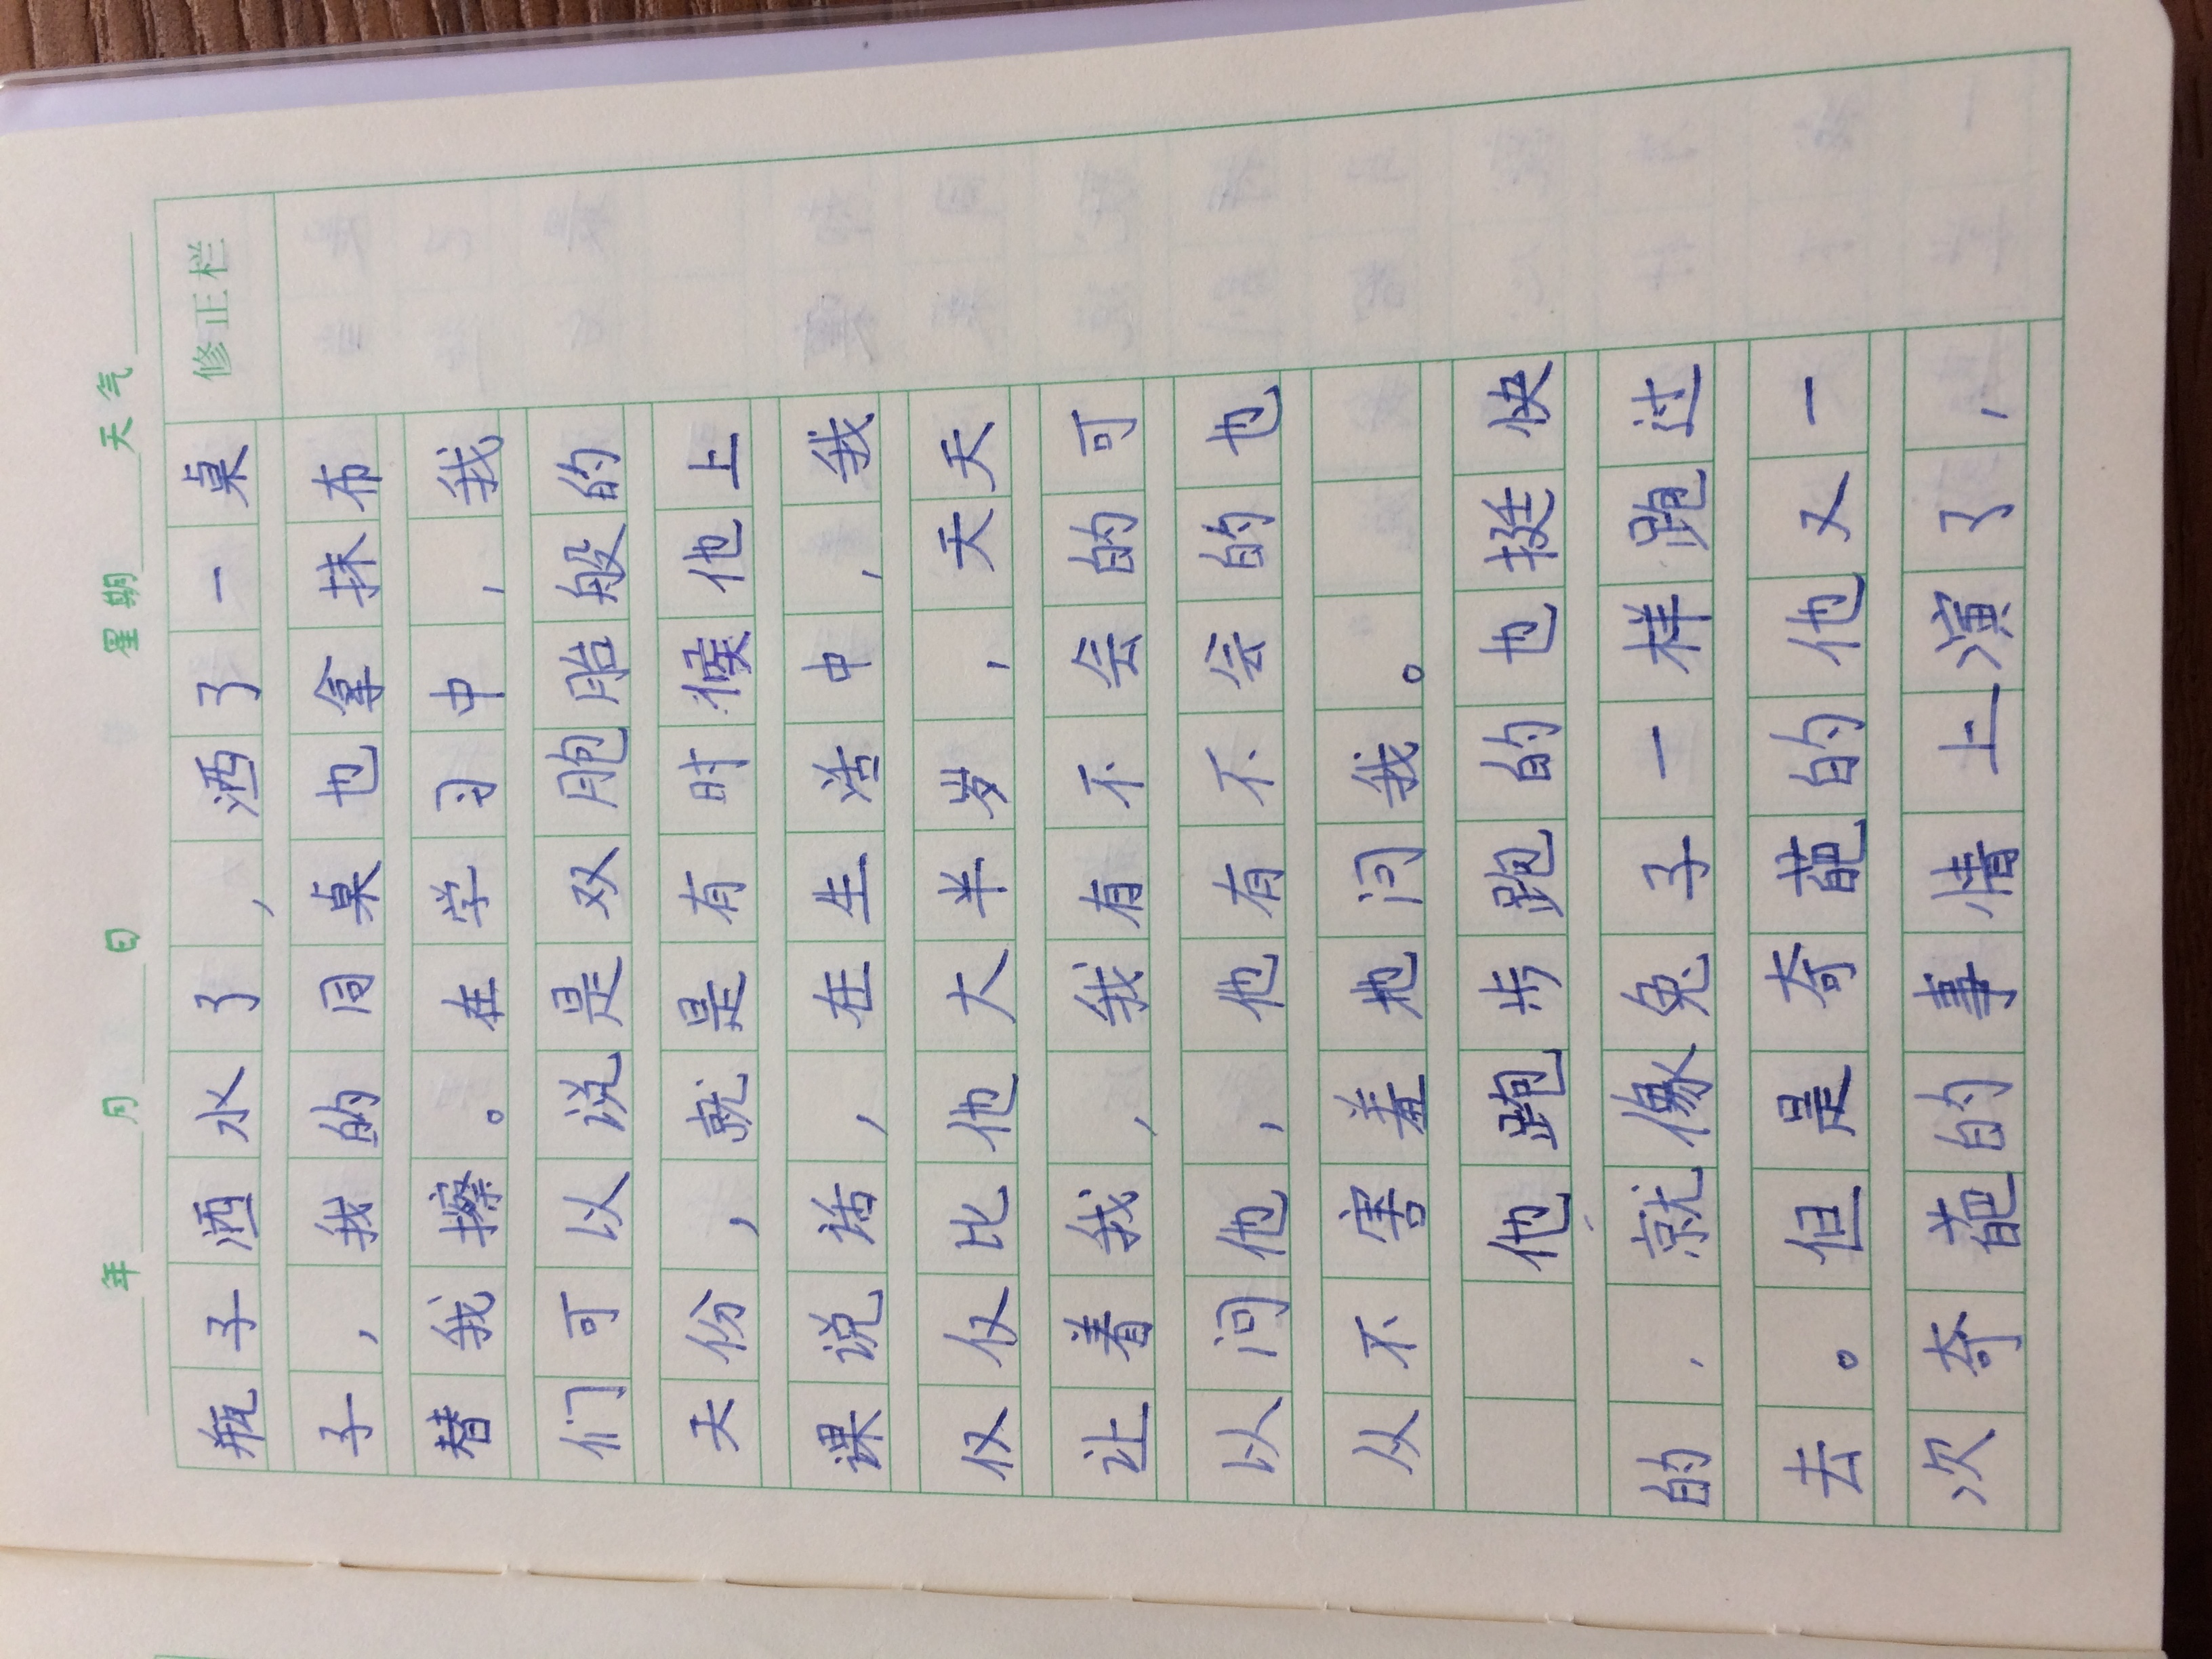 年 月 日 星期 天气
修正栏
瓶子洒水了，洒了一桌
子，我的同桌也拿抹布
替我擦。在学习中，我
们可以说是双胞胎般的
天份，就是有时候他上
课说话，在生活中，我
仅仅比他大半岁，天天
让着我，我有不会的可
以问他，他有不会的也
从不害羞地问我。
他跑步跑的也挺快
的，就像兔子一样跑过
去。但是奇葩的他又一
次奇葩的事情上演了，